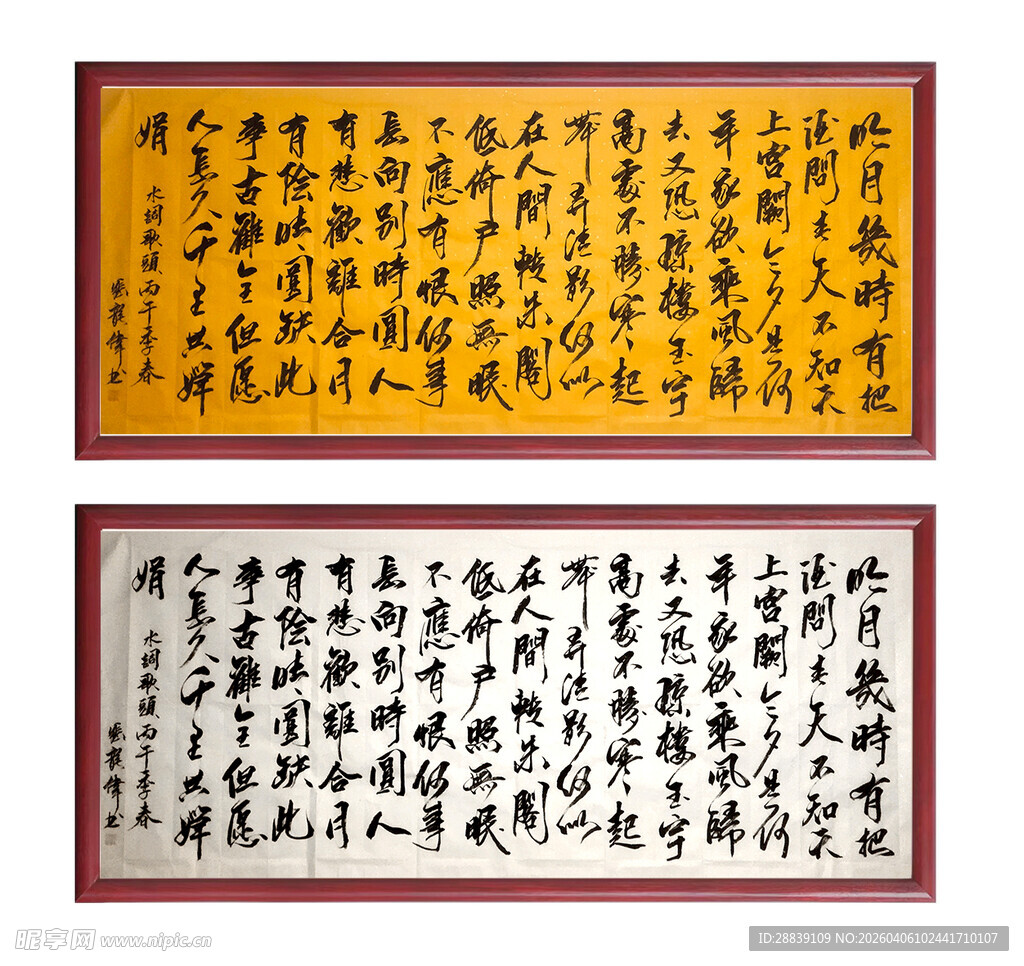 明月幾時有把
酒問青天不知天
上宮闕今夕是何
年我欲乘風歸
去又恐瓊樓玉宇
高處不勝寒起
舞弄清影何似
在人間轉朱閣
低倚户照無眠
不應有恨何事
長向別時圓人
有悲歡離合月
有陰晴圓缺此
事古難全但愿
人長久千里共嬋
娟
水詞歌頭丙午季春
书
明月幾時有把
酒問青天不知天
上宮闕今夕是何
年我欲乘風歸
去又恐瓊樓玉宇
高處不勝寒起
舞弄清影何似
在人間轉朱閣
低倚户照無眠
不應有恨何事
長向別時圓人
有悲歡離合月
有陰晴圓缺此
事古難全但愿
人長久千里共嬋
娟
水詞歌頭丙午季春
书
昵享网 www.nipic.cn
ID:28839109 NO:20260406102441710107